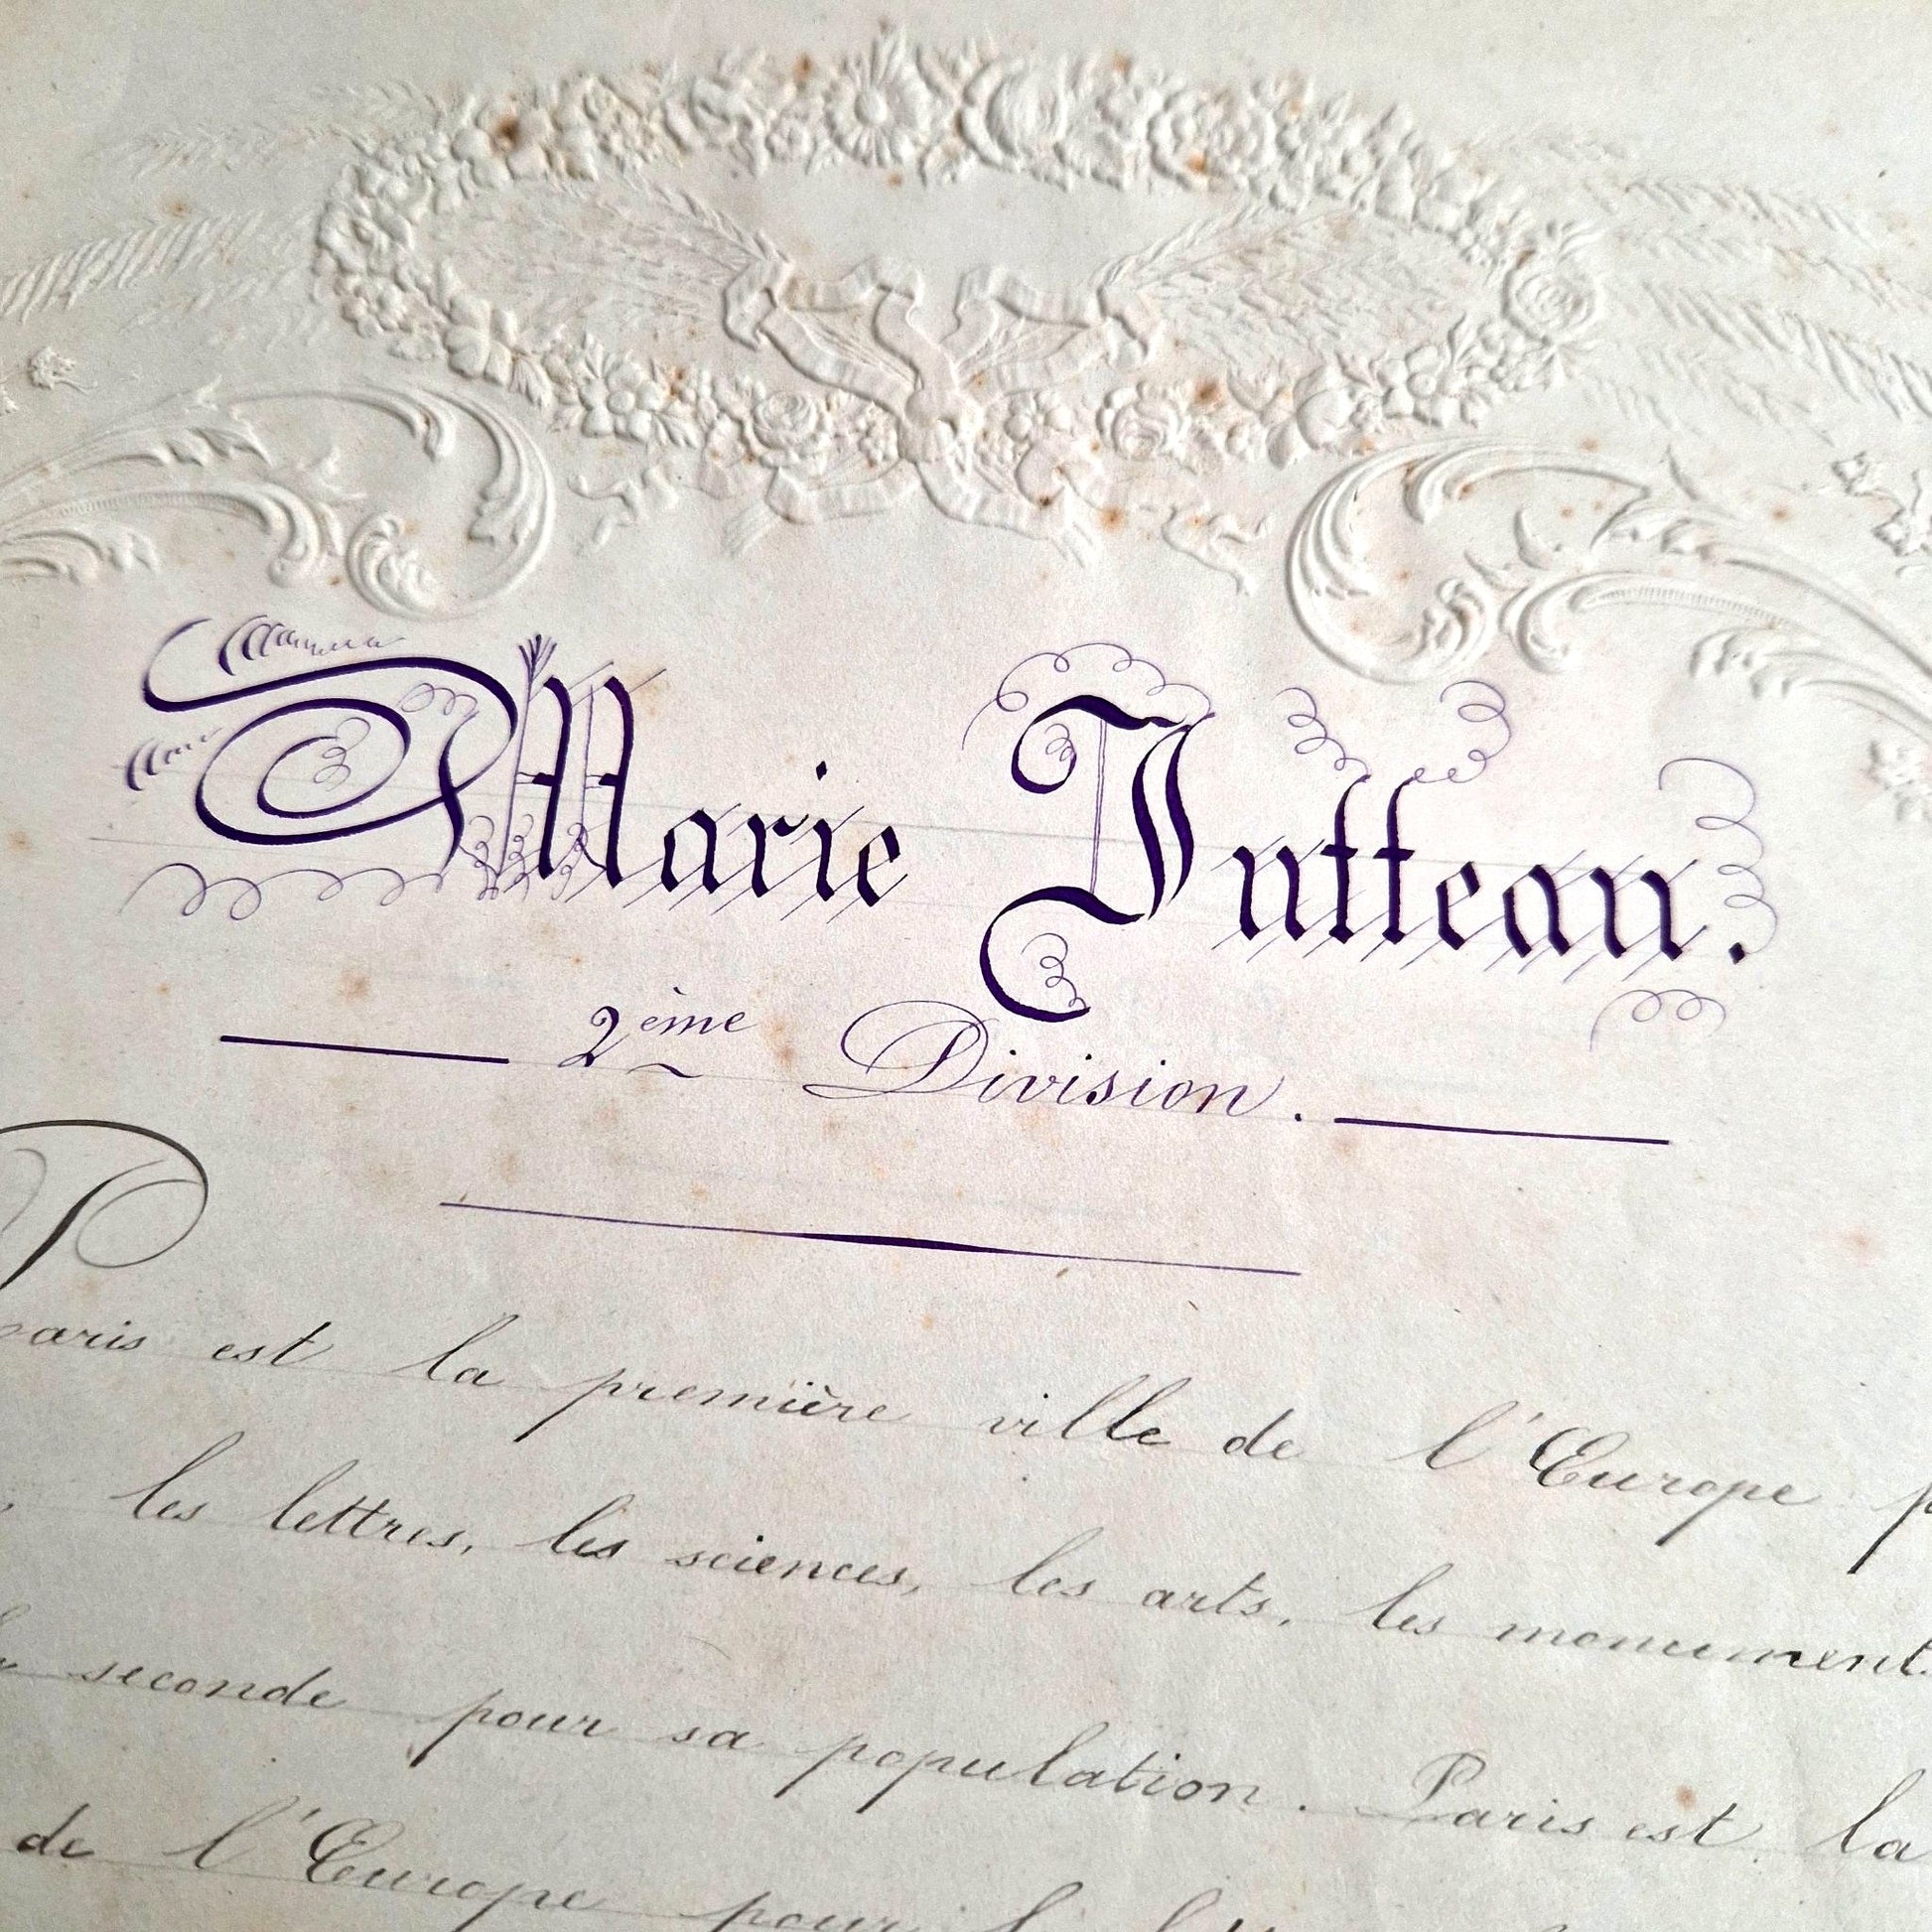 Marie Jutteau.
2ème Division.
Paris est la première ville de l'Europe
les lettres, les sciences, les arts, les monument
seconde pour sa population. Paris est la
de l'Europe pour